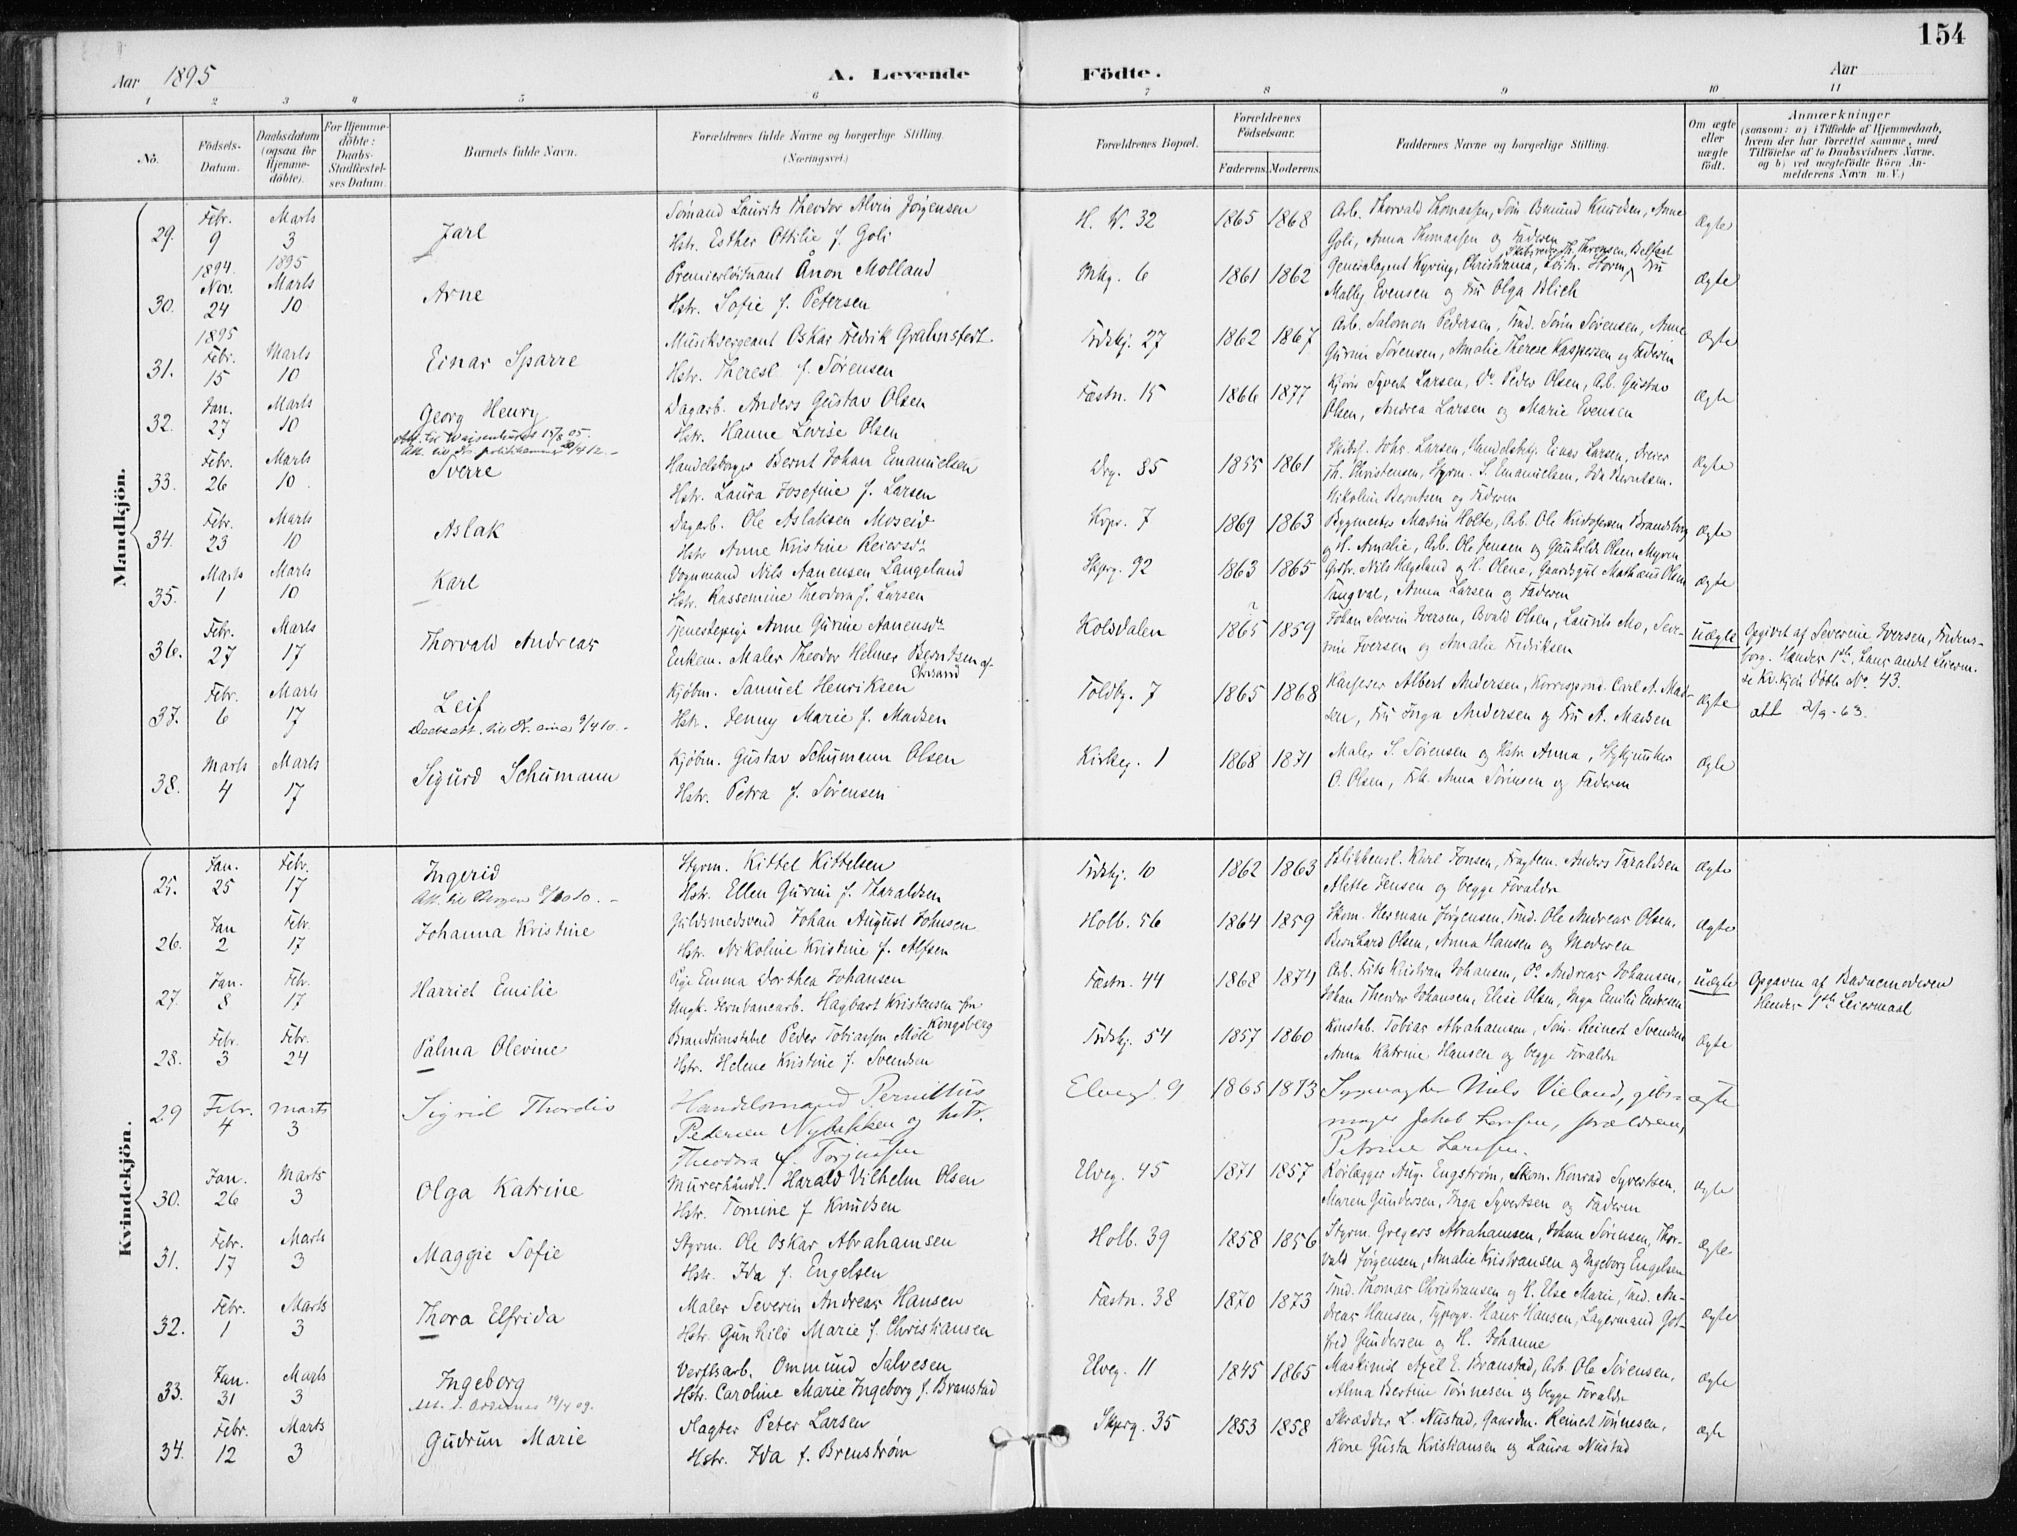 154
Aar 1895
A. Levende Födte.
Aar
1 2 3 4 5 6 7 8 9 10 11
No.
Födsels-Datum.
Daabsdatum (ogsaa for Hjemme-döbte).
For Hjemme-döbte: Daabs-Stadfæstel-ses Datum.
Barnets fulde Navn.
Forældrenes fulde Navne og borgerlige Stilling. (Næringsvei.)
Forældrenes Bopæl.
Forældrenes Födselsaar.
Faderens. Moderens.
Faddernes Navne og borgerlige Stilling.
Om ægte eller uægte födt.
Anmærkninger
(saasom: a) i Tilfælde af Hjemmedaab, hvem der har forrettet samme, med Tilföielse af to Daabsvidners Navne, og b) ved uægtefödte Börn An-melderens Navn m. V.)
Mandkjön.
29. Febr. 9 Marts 3 Jarl
Sømand Laurits Theodor Alvin Jørgensen
Hstr. Esther Ottilie f. Goli
H. W. 32 1865 1868
Arb. Thorvald Thomassen, Søm. Osmund Knudsen, Anne
Goli, Anna Thomassen og Faderen
ægte
30. 1894 Nov. 24 1895 Marts 10 Arne
Premierløitnant Ånon Molland
Hstr. Sofie f. Petersen
6 1861 1862
Skibsreder Th. Thronsen, Belfast
Generalagent Kyring, Christiania, Løitn. Fru
Mally Evensen og Fru Olga Blich
ægte
31. 1895 Febr. 15 Marts 10 Einar Sparre
Musiksergeant Oskar Fredrik Grahnstedt
Hstr. Therese f. Sørensen
Frdskj. 27 1862 1867
Arb. Salomon Pedersen, Tmd. Søren Sørensen, Anne
Gurine Sørensen, Amalie Therese Kaspersen og Faderen
ægte
32. Jan. 27 Marts 10 Georg Henry
Dagarb. Anders Gustav Olsen
Hstr. Hanne Lovise Olsen
Fæstn. 15 1866 1877
Kjøres Syvert Larsen, Do Peder Olsen, Arb. Gustav
Olsen, Andrea Larsen og Marie Evensen
ægte
33. Febr. 26 Marts 10 Sverre
Handelsborger Bernt Johan Emanuelsen
Hstr. Laura Josefine f. Larsen
Drg. 85 1855 1861
Skibsf. Johs. Larsen, Handelsbetj. Einar Larsen, Dreier
Th. Christensen, Styrm. S. Emanuelsen, Ida Berntsen.
Nikoline Berntsen og Faderen
ægte
34. Febr. 23 Marts 10 Aslak
Dagarb. Ole Aslaksen Moseid
Hstr. Anne Kristine Reiersdr
Kvpr. 7 1869 1863
Bygmester Martin Holte, Arb. Ole Kristofersen Brandsborg
og H. Amalie, Arb. Ole Jensen og Gunhilde Olsen Myren
ægte
35. Marts 1 Marts 10 Karl
Vognmand Nils Aanensen Langeland
Hstr. Rassemine Theodora f. Larsen
Skprg. 92 1863 1865
Gstr. Nils Hægeland og H. Olene, Gaardsgut Mathæus Olsen
Tangval, Anna Larsen og Faderen
ægte
36. Febr. 27 Marts 17 Thorvald Andreas
Tjenestepige Anne Gurine Aanensdr
Enkem. Maler Theodor Helmer Berntsen af
Chrsand
Kolsdalen 1865 1859
Johan Severin Iversen, Osvald Olsen, Laurits Mo, Seve-
rine Iversen og Amalie Fredriksen
uægte
Opgivet af Severine Iversen,
Hendes 1ste, hans andet Leierm.
No. 43.
att 2/9-63.
37. Febr. 6 Marts 17 Leif
Kjøbm. Samuel Henriksen
Hstr. Jenny Marie f. Madsen
Toldbg. 7 1865 1868
Albert Andersen, Korrespond. Carl A. Mad-
sen, Fru Inga Andersen og Fru A. Madsen
ægte
38. Marts 4 Marts 17 Sigurd Schumann
Kjøbm. Gustav Schumann Olsen
Hstr. Petra f. Sørensen
Kirkeg. 1 1868 1871
Maler S. Sørensen og Hstr. Anna, Stykjunker
O. Olsen, Frk. Anna Sørensen og Faderen
ægte
Kvindekjön.
25. Jan. 25 Febr. 17 Ingerid
Styrm. Kittel Kittelsen
Hstr. Ellen Gurine f. Tharaldsen
Frdskj. 10 1862 1863
Blikkensl. Karl Jonsen, Fragtem. Anders Taraldsen
Alette Jensen og begge Forældre
ægte
26. Jan 2 Febr. 17 Johanna Kristine
Guldsmedsvend Johan August Johnsen
Hstr. Nikoline Kristine f. Alfsen
Holb. 56 1864 1859
Skom. Herman Jørgensen, Tmd. Ole Andreas Olsen,
Bernhard Olsen, Anna Hansen og Moderen
ægte
27. Jan. 8 Feb. 17 Harriet Emilie
Pige Emma Dorthea Johansen
Ungk. Jernbanearb. Hagbart Kristensen fra
Kongsberg
Fæstn. 44 1868 1874
Arb. Frits Kristian Johansen, Do Andreas Johansen,
Johan Theodor Johansen, Elise Olsen, Inga Emilie Endresen
uægte
Opgaven af Barnemoderen
Hendes 1ste Leiermaal
28. Febr. 3 Febr. 24 Palma Olevine
Brandkonstabel Peder Tobiassen Møll
Hstr. Helene Kristine f. Svendsen
Frdskj. 54 1857 1860
Konstab. Tobias Abrahamsen, Søm. Reinert Svendsen
Anna Katrine Hansen og begge Forældre
ægte
29 Febr. 4 marts 3 Sigrid Thordis
Handelsmand Pernittus
Pedersen Nybakken og hstr.
Theodora f. Torjussen
Elvegd. 9 1865 1873
Sygevogter Niels Vieland, gibs-
mager Jakob Larsen, forældrene,
Petrine Larsen.
ægte
30. Jan. 26 Marts 3 Olga Katrine
Murerhåndl. Harald Vilhelm Olsen
Hstr. Tomine f Knudsen
Elveg. 45 1871 1857
Rørlægger Aug. Engstrøm, Skom. Konrad Syvertsen,
Maren Gundersen, Inga Syvertsen og Faderen
ægte
31. Febr. 17 Marts 3 Maggie Sofie
Styrm. Ole Oskar Abrahamsen
Hstr. Ida f. Engelsen
Holb. 39 1858 1856
Styrm. Gregers Abrahamsen, Johan Sørensen, Thor-
vald Jørgensen, Amalie Kristiansen og Ingeborg Engelsen
ægte
32. Febr. 1 Marts 3 Thora Elfrida
Maler Severin Andreas Hansen
Hstr. Gunhild Marie f. Christiansen
Fæstn. 38 1870 1873
Tmd. Thomas Christiansen og H. Else Marie, Tmd. An-
dreas Hansen, Typogr. Hans Hansen, Lagermand Got-
fred Gundersen og H. Johanne
ægte
33. Jan. 31 Marts 3 Ingeborg
Verftsarb. Ommund Salvesen
Hstr. Caroline Marie Ingeborg f. Branstad
Elveg. 11 1845 1865
Maskinist Axel E. Branstad, Arb. Ole Sørensen,
Alma Bertine Tønnesen og begge Forældre
ægte
34. Febr. 12 Marts 3 Gudrun Marie
Slagter Peter Larsen
Hstr. Ida f. Brenstrøm
Skprg. 35 1853 1858
Skrædder L. Nustad, Gaardm. Reinert Tønnesen,
Kone Gusta Kristiansen og Laura Nustad
ægte